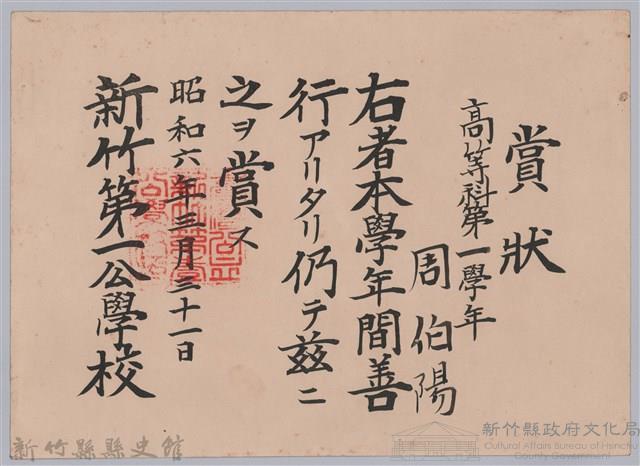 賞狀
高等科第一學年
周伯陽
右者本學年間善
行アリタリ仍テ茲ニ
之ヲ賞ス
昭和六年三月三十一日
新竹第一公學校
新竹縣縣史館
新竹縣政府文化局
Cultural Affairs Bureau of Hsinchu
County Government